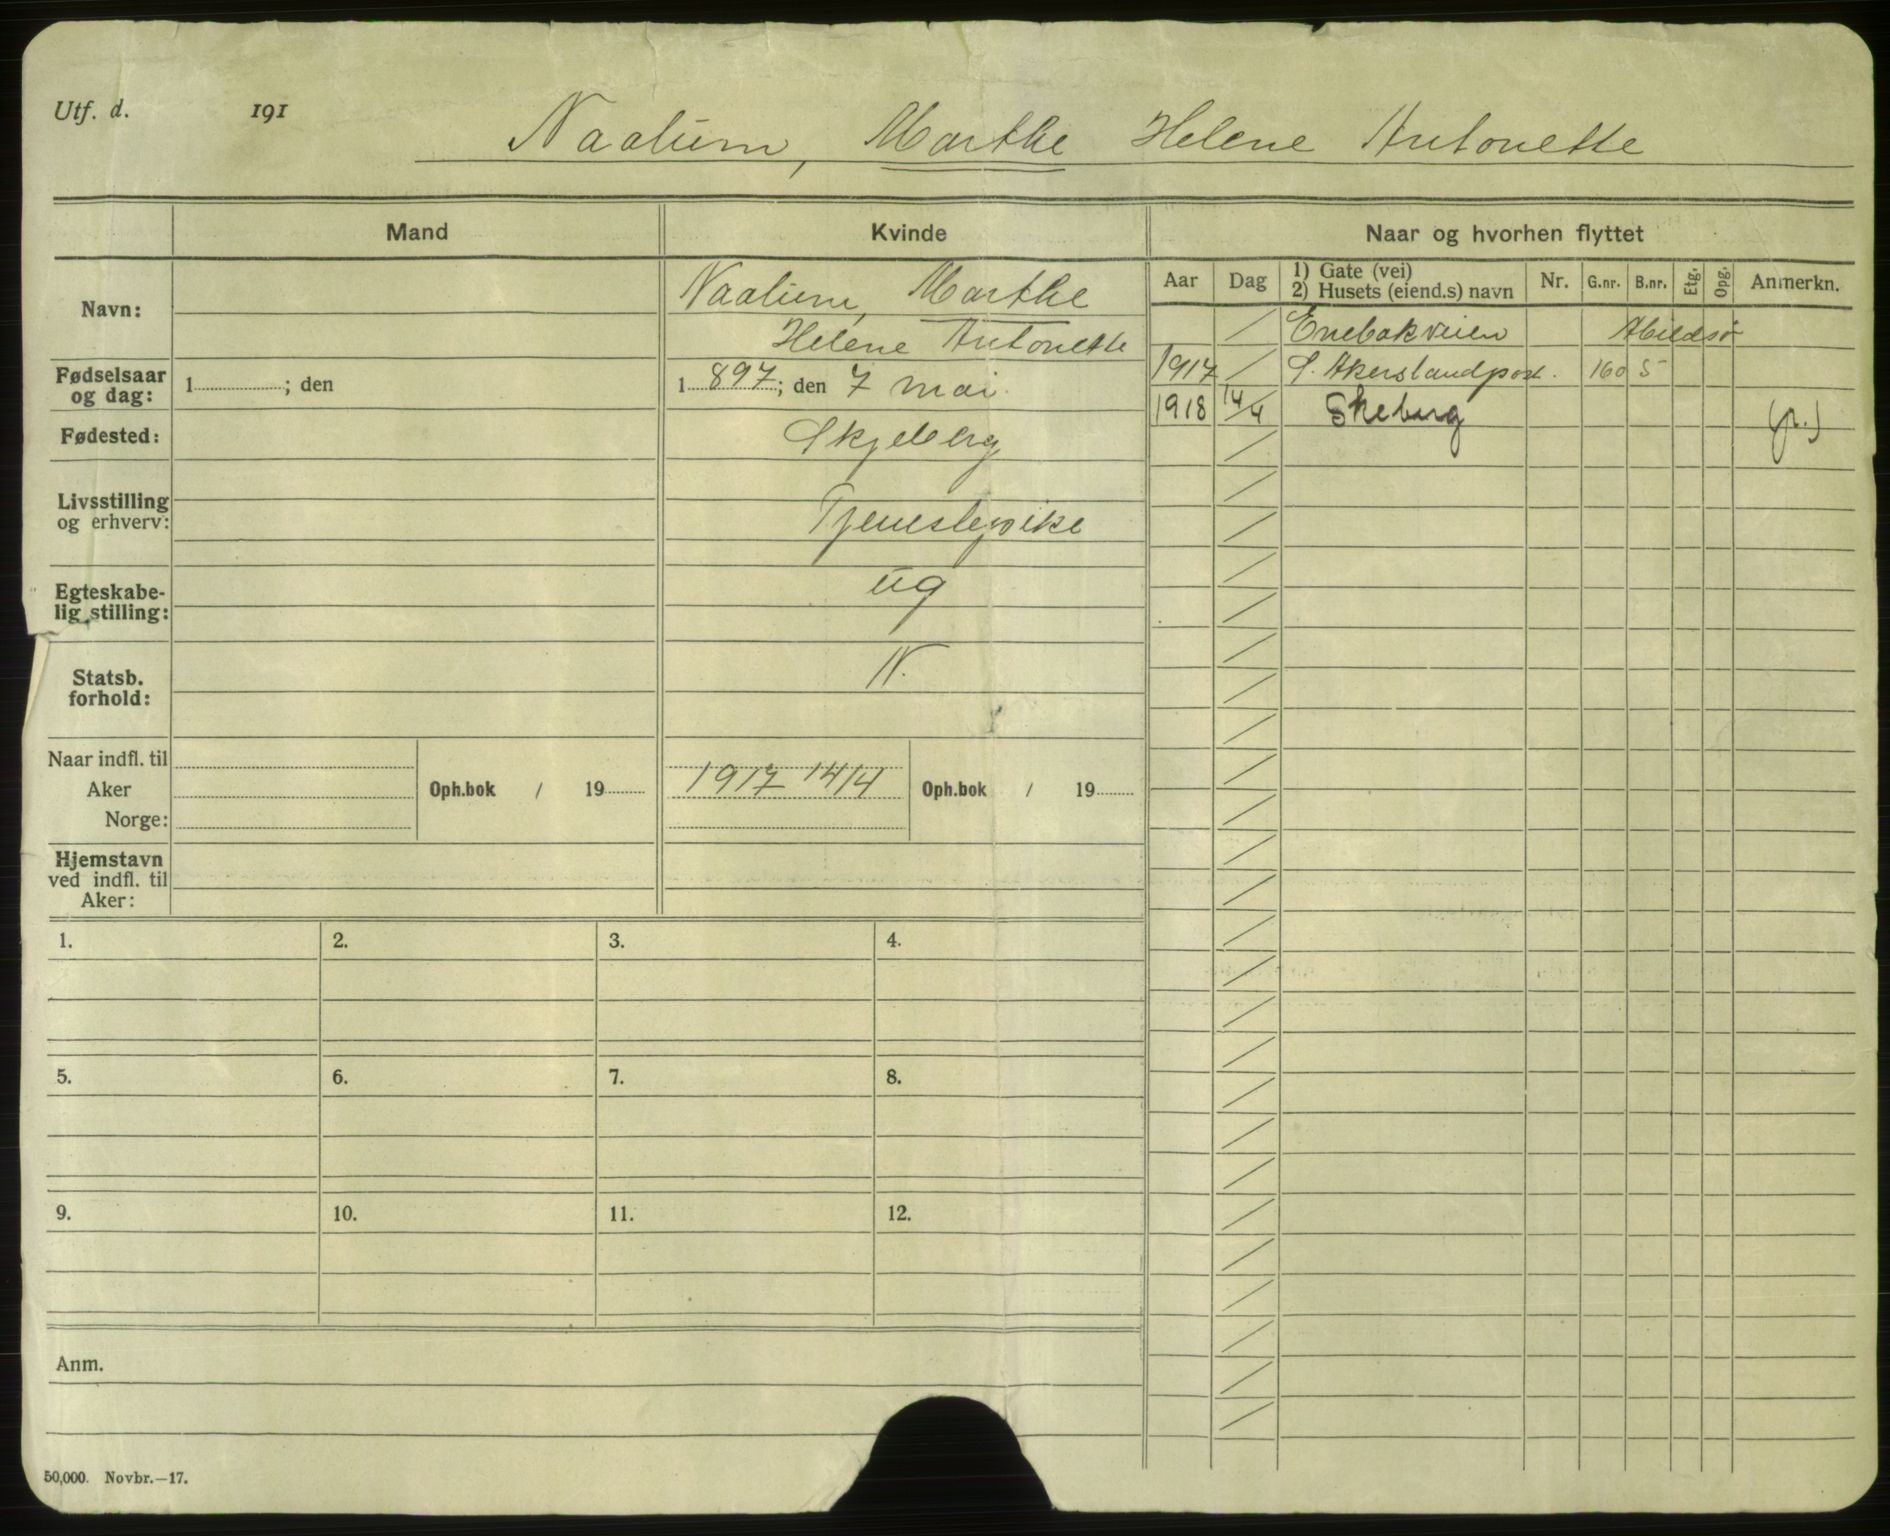 Utf. d. 191
Naalum, Marthe Helene Antonette
Mand
Kvinde
Naar og hvorhen flyttet
Navn:
Naalum, Marthe
Helene Antonette
Fødselsaar
og dag:
1 ; den
1 897; den 7 mai.
Fødested:
Skjeberg
Livsstilling
og erhverv:
Tjenestepike
Egteskabe-
lig stilling:
ug
Statsb.
forhold:
N.
Naar indfl. til
Aker
Norge:
Oph.bok / 19
1917 14/4
Oph.bok / 19
Hjemstavn
ved indfl. til
Aker:
1. 2. 3. 4.
5. 6. 7. 8.
9. 10. 11. 12.
Anm.
50,000. Novbr.—17.
Aar Dag 1) Gate (vei)
2) Husets (eiend.s) navn Nr. G.nr. B.nr. Etg. Opg. Anmerkn.
/ Enebakveien Abildsø
1917 / S. Akerslandpost. 160 5
1918 14/4 Skeberg